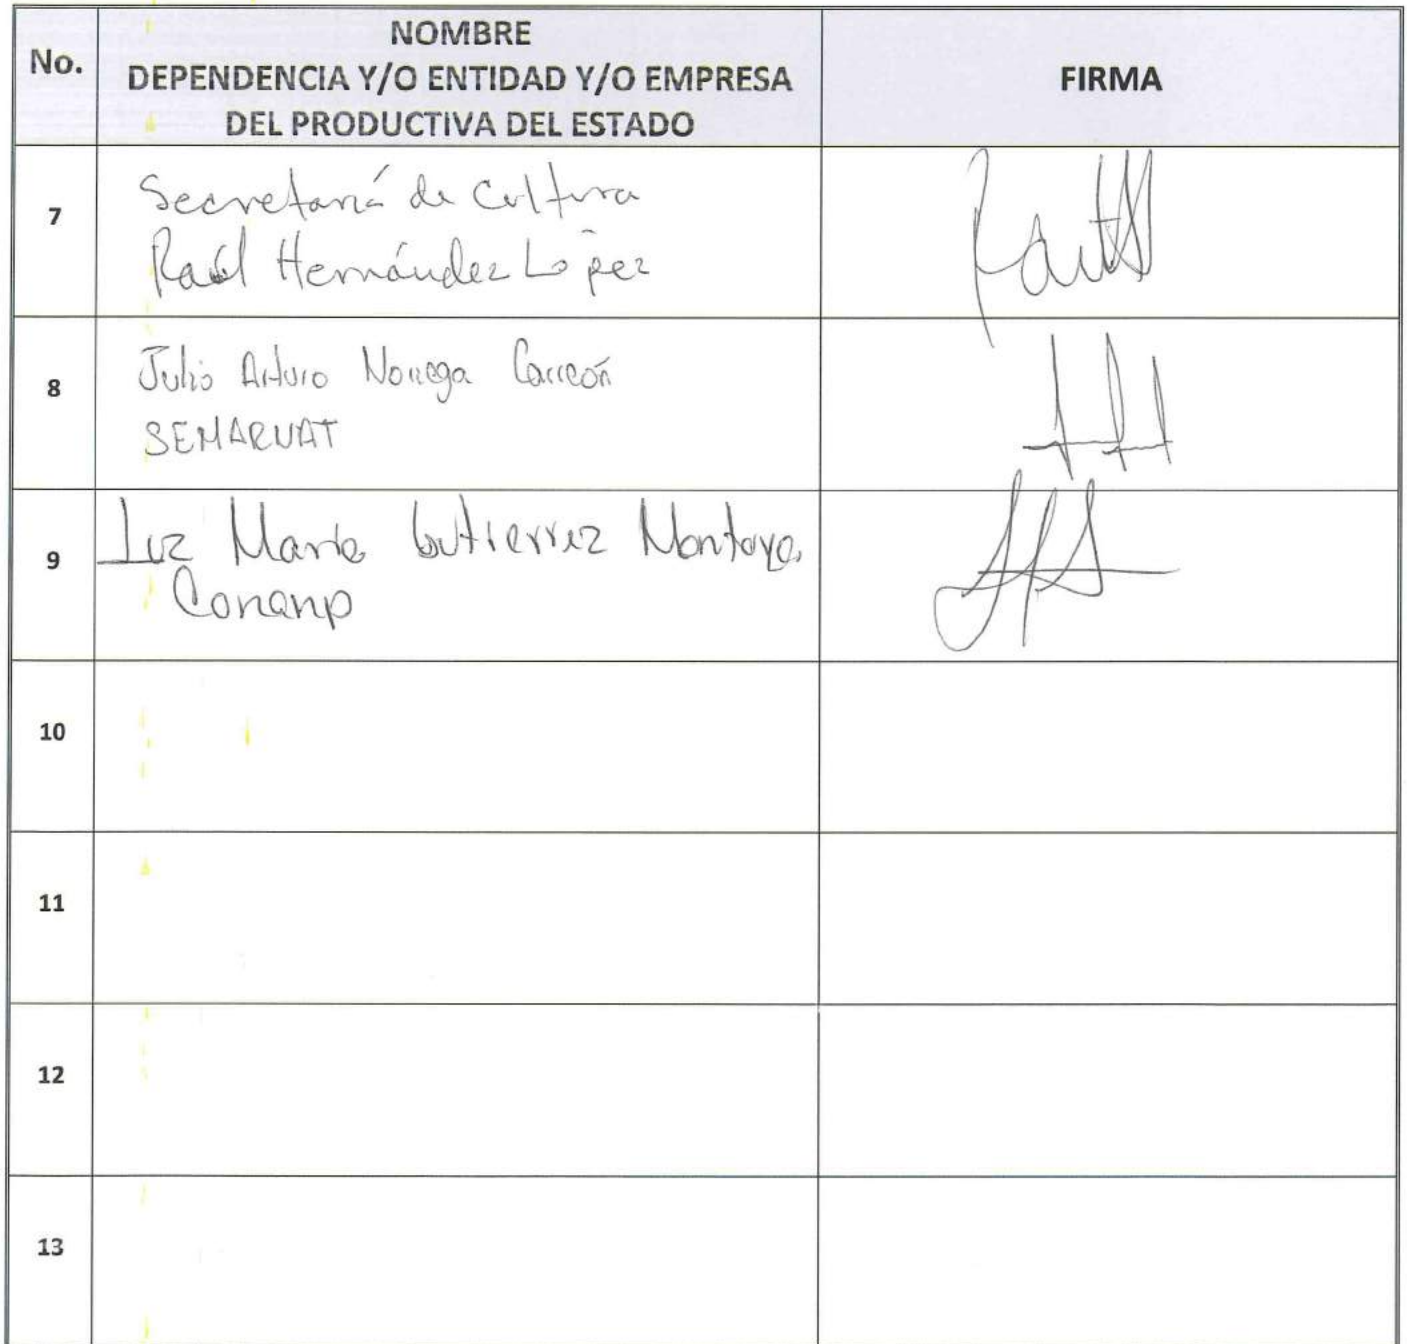 No.
NOMBRE
DEPENDENCIA Y/O ENTIDAD Y/O EMPRESA
DEL PRODUCTIVA DEL ESTADO
FIRMA
7
Secretaría de Cultura
Raúl Hernández López
8
Julio Arturo Noriega Carreón
SEMARNAT
9
Luz María Gutierrez Montoya
Conanp
10
11
12
13